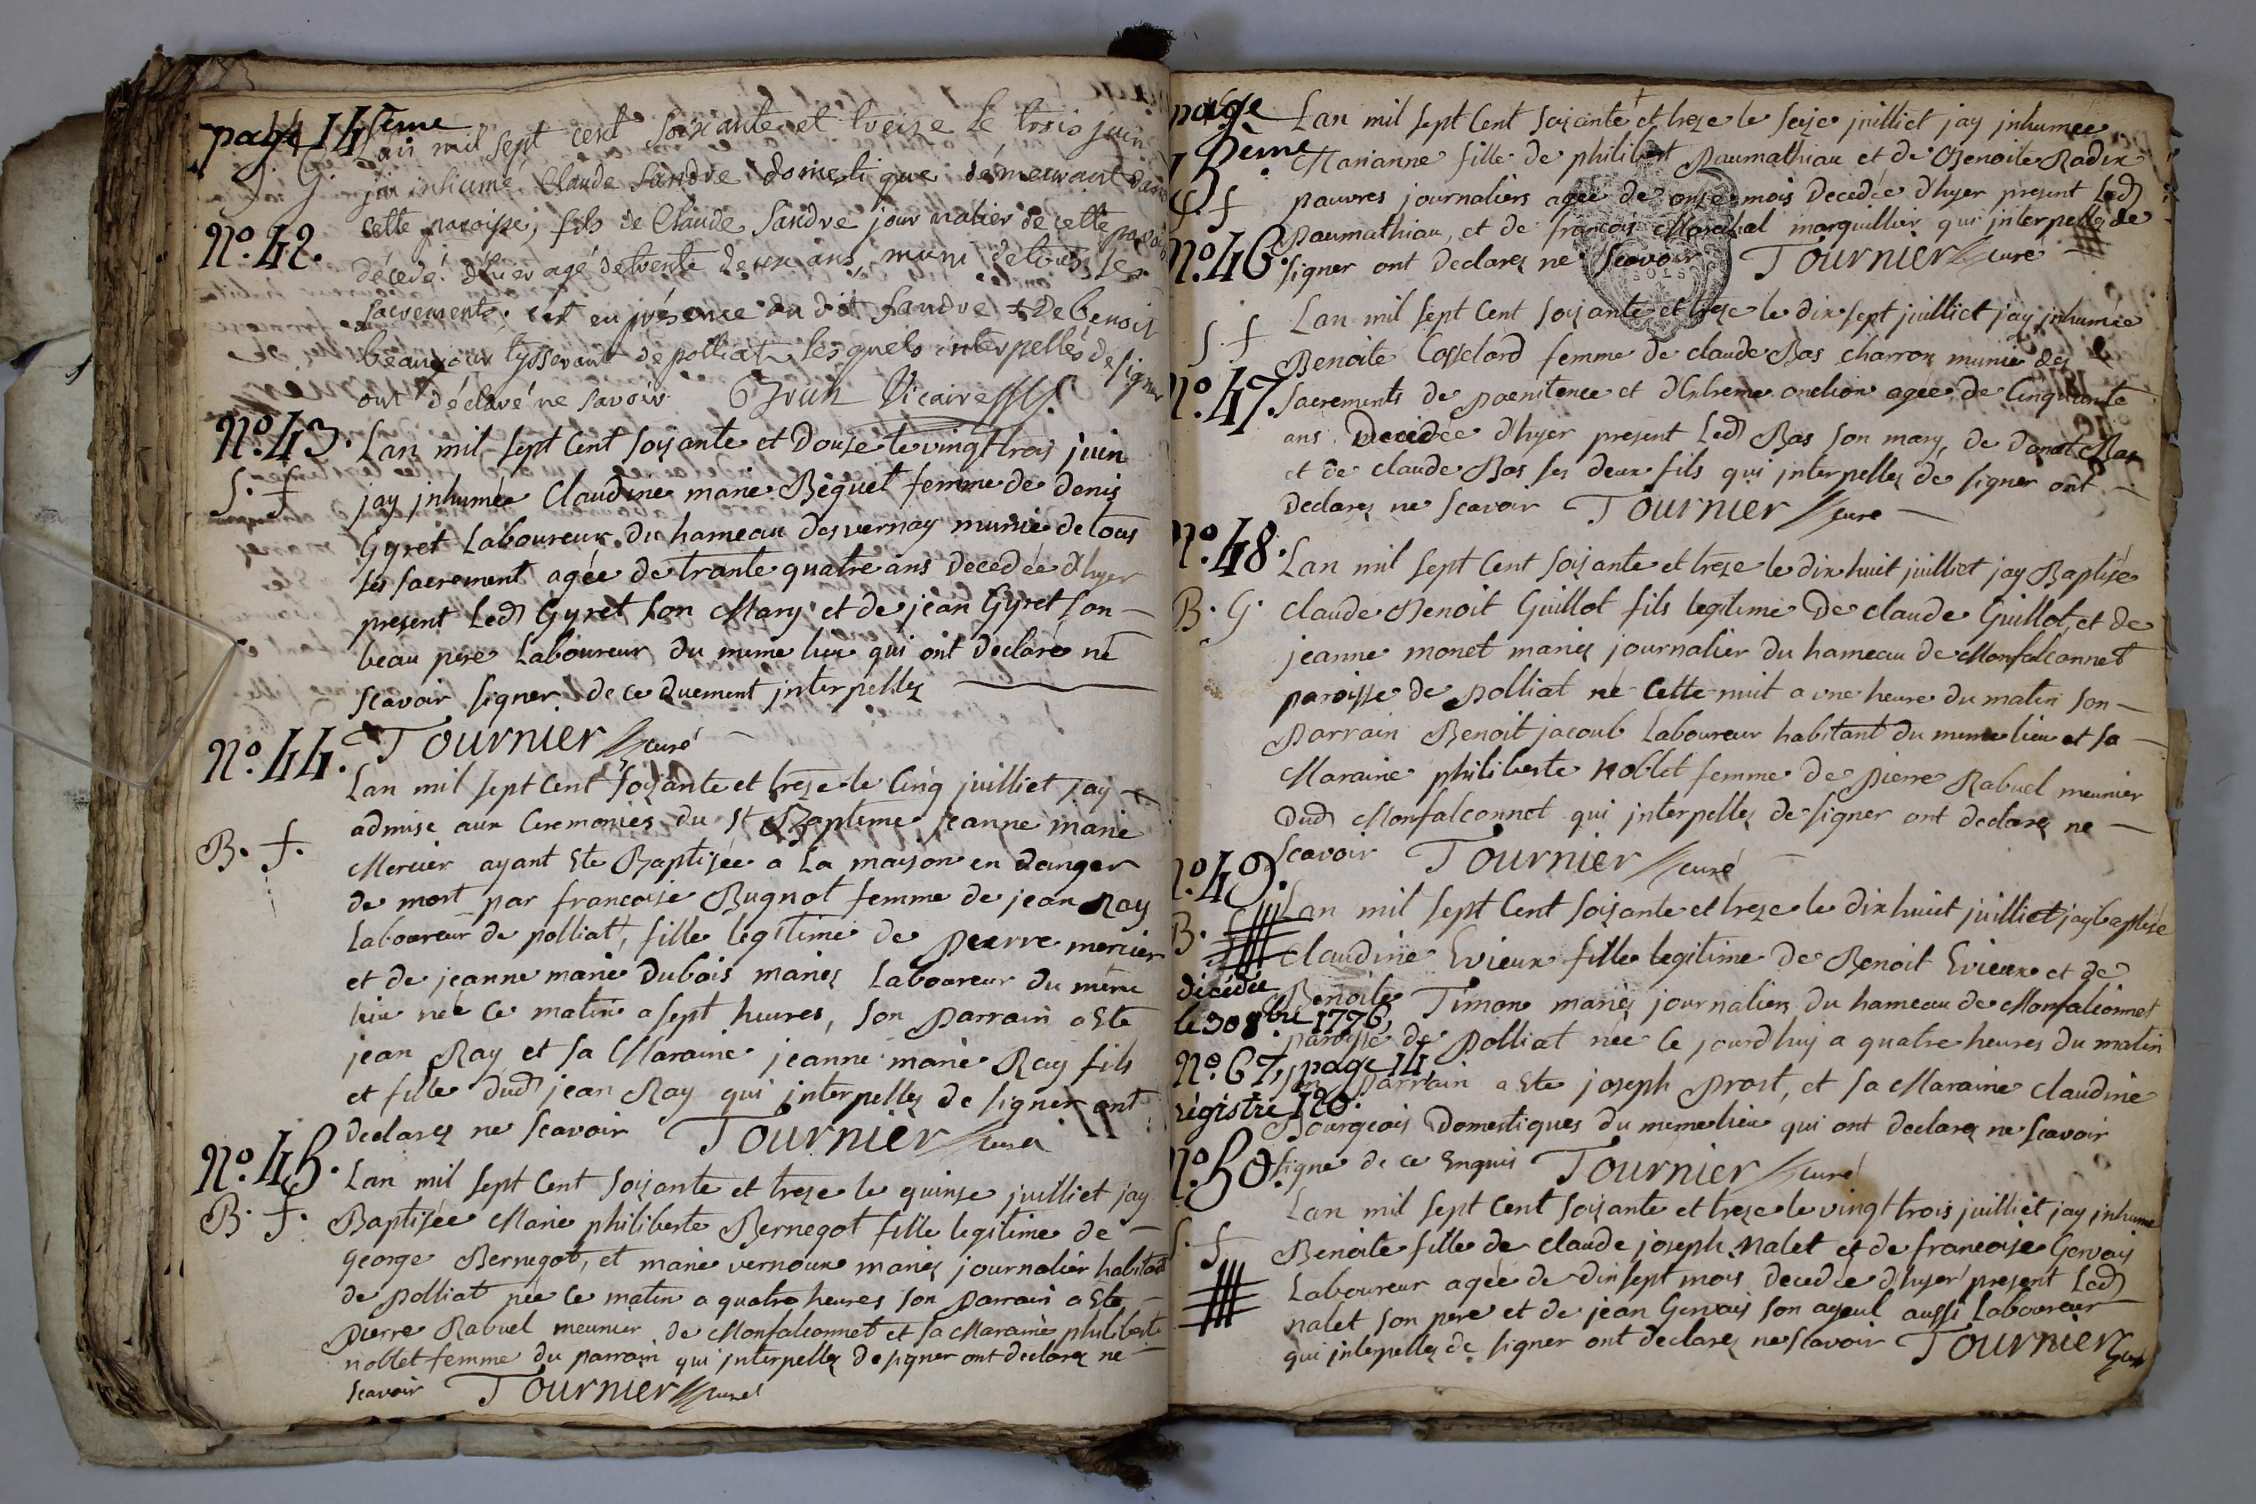 page 14ème
Lan mil sept cent soixante et treize le trois juin
S. G. jai inhumé Claude Sandre domestique démeurant dans
cette paroisse, fils de Claude Sandre journalier de cette paroisse
No. 42.
décédé d'hier agé de trente deux ans muni de tous les
sacrements, cet en présence du dit Sandre & de benoit
beaujour tysserant de polliat lesquels interpellés de signer
ont déclaré ne savoir Vicaire
No. 43. Lan mil sept Cent soixante et Douze le vingt trois juin
S. f jay jnhumée Claudine marie Beguet femme de denis
Gyret Laboureur du hameau desvernay munie de tous
ses sacrement agée de trante quatre ans Decedée d'hyer
present Led Gyret son Mary et de jean Gyret son
beau pere Laboureur du meme lieu qui ont declaré ne
scavoir signer de ce duement jnterpellez
Tournier curé
No. 44. Lan mil sept Cent soixante et treze le Cinq juilliet jay
admise aux Ceremonies du St Bapteme jeanne marie
B. f. Mercier ayant Ete Baptisée a La maison en danger
de mort par francoise Bugnot femme de jean Ray
Laboureur de polliat, fille legitime de pierre mercier
et de jeanne marie Dubois mariez Laboureur du meme
lieu née Ce matin a sept heures, son Parrain a Ete
jean Ray et sa Maraine jeanne marie Ray fils
et fille dud jean Ray qui jnterpellez de signer ont
declarez ne scavoir Tournier curé
No. 45. Lan mil sept Cent soixante et treze le quinze juilliet jay
B. f. Baptisée Marie philiberte Bernegot fille legitime de
george Bernegot, et marie vernoux mariez journalier habitant
de Polliat née Ce matin a quatre heures son Parrain a Ete
Pierre Rabuel meunier de Monfalconnet et sa Maraine philiberte
noblet femme du parrain qui jnterpellez de signer ont declarez ne
scavoir Tournier curé
page 15ème
Lan mil sept Cent soixante et treze le seize juilliet jay jnhumée
Marianne fille de philibert Paumathiau et de Benoite Radix
S. f pauvres journaliers agée de onze mois Decedée d'hyer present Led
Paumathiau, et de francois Marechal marguillier qui jnterpellez de
No. 46. signer ont Declarez ne scavoir Tournier curé
Lan mil sept Cent soixante et treze le dix sept juilliet jay jnhumée
S. f Benoite Cosselard femme de claude Bas charron munie des
No. 47. sacrements de poenitence et d'Extreme onction agée de Cinquante
ans Decedée d'hyer present Led Bas son mary, de donat Bas
et de claude Bas ses deux fils qui jnterpellez de signer ont
Declarez ne scavoir Tournier curé
No. 48. Lan mil sept Cent soixante et treze le dix huit juilliet jay Baptisé
B. G. Claude Benoit Guillot fils legitime De claude Guillot, et de
jeanne monet mariez journalier du hameau de Monfalconnet
paroisse de Polliat né Cette nuit a une heure du matin son
Parrain Benoit jacoub Laboureur habitant du meme lieu et sa
Maraine philiberte noblet femme de Pierre Rabuel meunier
Dud Monfalconnet qui jnterpellez de signer ont declarez ne
scavoir Tournier curé
No. 49.
Lan mil sept Cent soixante et treze le dix huit juilliet jay baptisée
B. Claudine Evieux fille legitime de Benoit Evieux et de
Benoite Timon mariez journaliers du hameau de Monfalconnet
paroisse de Polliat née Ce jourd'huy a quatre heures du matin
son Parrain a Ete joseph Prost, et sa Maraine Claudine
Bourgeois Domestiques du meme lieu qui ont declarez ne scavoir
signe de ce Enquis Tournier curé
décédée
le 30 8bre 1776,
No. 67, page 14,
régistre 120.
No. 50.
Lan mil sept Cent soixante et treze le vingt trois juilliet jay jnhumé
S. f Benoite fille de claude joseph Nalet et de francoise Gervais
Laboureur agée de dix sept mois decedée d'hyer present Led
nalet son pere et de jean Gervais son ayeul aussi Laboureur
qui jnterpellez de signer ont declarez ne scavoir Tournier curé